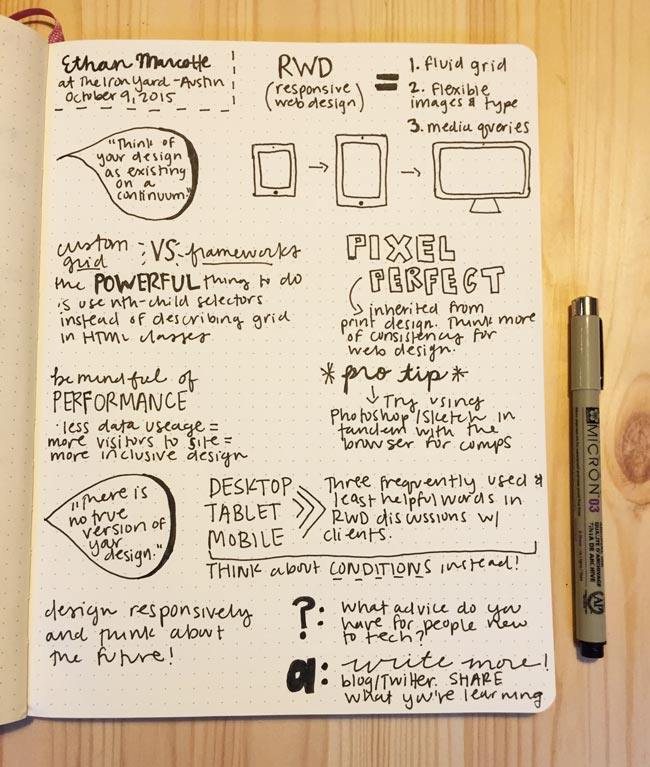 Ethan Marcotte
at The Iron Yard - Austin
October 9, 2015
RWD
(responsive
web design)
=
1. fluid grid
2. flexible
images & type
3. media queries
"Think of
your design
as existing
on a
continuum."
custom
grid
VS
frameworks
the POWERFUL thing to do
is use nth-child selectors
instead of describing grid
in HTML classes
PIXEL
PERFECT
inherited from
print design. Think more
of consistency for
web design.
be mindful of
PERFORMANCE
· less data useage =
more visitors to site =
more inclusive design
* pro tip *
Try using
Photoshop/Sketch in
tandem with the
browser for comps
"There is
no true
version of
your
design."
DESKTOP
TABLET
MOBILE
Three frequently used &
least helpful words in
RWD discussions w/
clients.
THINK about CONDITIONS instead!
design responsively
and think about
the future!
?: What advice do you
have for people new
to tech?
a: write more!
blog/Twitter. SHARE
what you're learning
MICRON 03